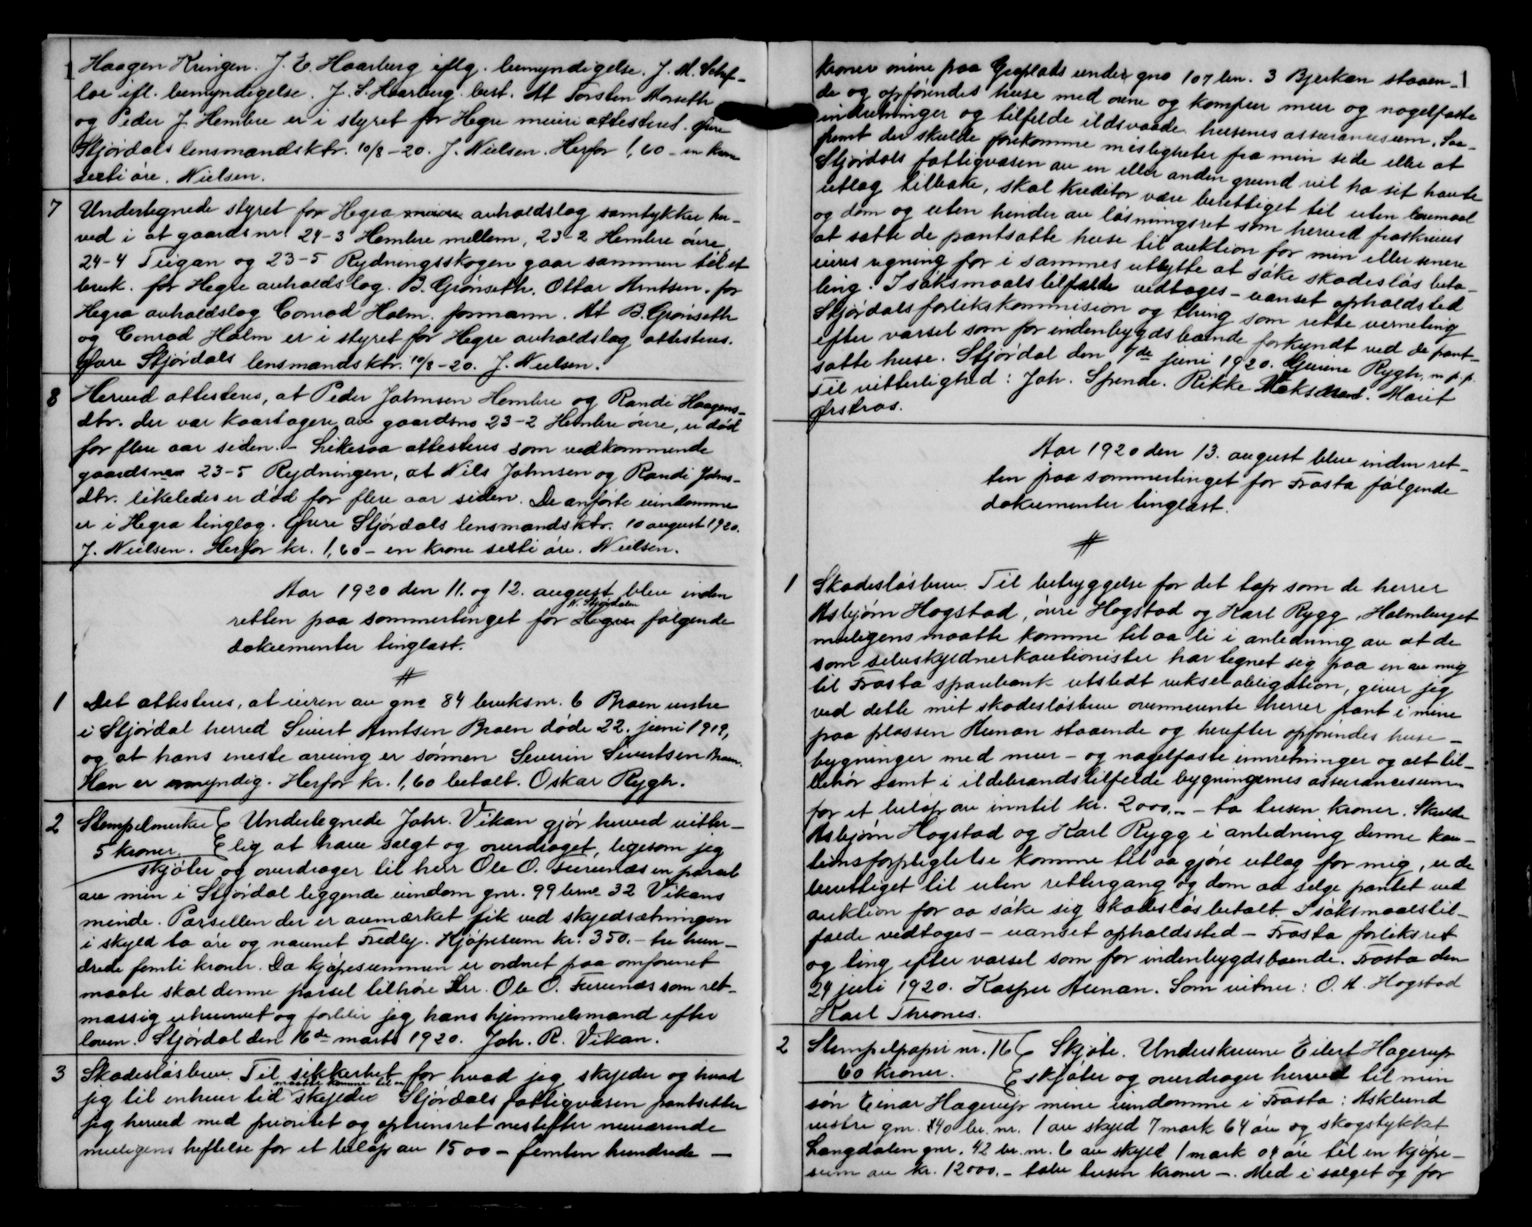 Haagen Kringen. J. E. Haarberg iflg. bemyndigelse. J. M. Schef-
loe ifl. bemyndigelse. J. S. Haarberg best. At Torsten Morseth
og Peder J. Hembre er i styret for Hegre meieri attesteres. Øvre
Stjørdals lensmandsktr. 10/8-20. J. Nielsen. Herfor 1,60 - en krone
seksti øre. Nielsen.
7 Undertegnede styret for Hegra avholdslag samtykker her-
ved i at gaardsnr 24-3 Hembre mellem, 23-2 Hembre øvre,
24-4 Teigan og 23-5 Rydningsskogen gaar sammen til et
bruk. for Hegre avholdslag. B. Grønseth. Ottar Arntsen. for
Hegra avholdslag Conrad Holm. formann. At B. Grønseth
og Conrad Holm er i styret for Hegre avholdslag attesteres.
Øvre Stjørdals lensmandsktr. 10/8-20. J. Nielsen.
8 Herved attesteres, at Peder Johnsen Hembre og Randi Haagens-
dtr. der var kaartagere av gaardsno 23-2 Hembre øvre, er død
for flere aar siden. - Likesaa attesteres som vedkommende
gaardsno 23-5 Rydningen, at Nils Johnsen og Randi Johns-
dtr. likeledes er død for flere aar siden. De anførte eiendomme
er i Hegra tinglag. Øvre Stjørdals lensmandsktr. 10 august 1920.
J. Nielsen. Herfor kr. 1,60 - en krone seksti øre. Nielsen.
Aar 1920 den 11. og 12. august blev inden
N. Stjørdalen
retten paa sommertinget for Hegre følgende
dokumenter tinglæst.
1 Det attesteres, at eieren av gno 84 bruksnr. 6 Braen vestre
i Stjørdal herred Sivert Arntsen Braen døde 22. juni 1919,
og at hans eneste arving er sønnen Severin Sivertsen Braen.
Han er myndig. Herfor kr. 1,60 betalt. Oskar Rygh.
2 Stempelmerke Undertegnede Johr. Vikan gjør herved vitter-
5 kroner. lig at have solgt og overdraget, ligesom jeg
skjøter og overdrager til herr Ole O. Furunes en parsel
av min i Stjørdal liggende eiendom gnr. 99 brnr 32 Vikans
minde. Parsellen der er avmærket fik ved skyldsætningen
i skyld to øre og navnet Fredly. Kjøpesum kr. 350.- tre hun-
drede femti kroner. Da kjøpesummen er ordnet paa omforenet
maate skal denne parsel tilhøre hr. Ole O. Furunes som ret-
mæssig erhvervet og forblir jeg hans hjemmelsmand efter
loven. Stjørdal den 16de mars 1920. Joh. R. Vikan.
3 Skadesløsbrev. Til sikkerhet for hvad jeg skylder og hvad
maatte komme til at
jeg til enhver tid skylder Stjørdals fattigvæsen pantsetter
jeg herved med prioritet og optrinsret nestefter nuværende
muligens heftelse for et beløp av 1500 - femten hundrede -
kroner mine paa Geoplads under gno 107 brn. 3 Bjerkan staaen-
de og opførendes huse med ovne og komfur mur og nagelfaste
indretninger og tilfelde ildsvaade husenes assurancesum. Saa-
fremt der skulde forekomme misligheter fra min side eller at
Stjørdals fattigvæsen av en eller anden grund vil ha sit havte
utlæg tilbake, skal kreditor være berettiget til uten lovmaal
og dom og uten hinder av løsningsret som herved fraskrives
at sætte de pantsatte huse til auktion for min eller senere
eieres regning for i sammes utbytte at søke skadesløs beta-
ling. I søksmaalstilfælde vedtages - uanset opholdssted
Stjørdals forlikskommision og thing som rette verneting
efter varsel som for indenbygds boende forkyndt ved de pant-
satte huse. Stjørdal den 9de juni 1920. Gurine Rygh, m.p.p.
Til vitterlighed: Joh. Spende. Rikke Haksaas. Marit
Ørstraas.
Aar 1920 den 13. august blev inden ret-
ten paa sommertinget for Frosta følgende
dokumenter tinglæst.
1 Skadesløsbrev. Til betryggelse for det tap som de herrer
Asbjørn Hogstad, øvre Hogstad og Karl Rygg, Holmberget
muligens maatte komme til aa li i anledning av at de
som selvskyldnerkautionister har tegnet sig paa en av mig
til Frosta sparebank utstedt vekselobligation, giver jeg
ved dette mit skadesløsbrev ovennevnte herrer pant i mine
paa plassen Aunan staaende og herefter opførendes huse -
bygninger med mur- og nagelfaste innretninger og alt til-
behør samt i ildebrandstilfelde bygningernes assurancesum
for et beløp av inntil kr. 2000.- - to tusen kroner. Skulde
Asbjørn Hogstad og Karl Rygg i anledning denne kau-
tionsforpligtelse komme til aa gjøre utlæg for mig, er de
berettiget til uten rettergang og dom aa selge pantet ved
auktion for aa søke sig skadesløs betalt. I søksmaalstil-
fælde vedtages - uanset opholdssted - Frosta forliksret
og ting efter varsel som for indenbygdsboende. Frosta den
24 juli 1920. Kasper Aunan. Som vitner: O. A. Hogstad
Karl Thrones.
2 Stempelpapir nr. 16 Skjøte. Underskrevne Eilert Hagerup
60 kroner. skjøter og overdrager herved til min
søn Einar Hagerup mine eiendomme i Frosta: Asklund
vestre gnr. 40 br. nr. 1 av skyld 7 mark 64 øre og skogstykket
Langdalen gnr. 42 br. nr. 6 av skyld 1 mark 09 øre til en kjøpe-
sum av kr. 12000.- tolv tusen kroner -. Med i salget og for